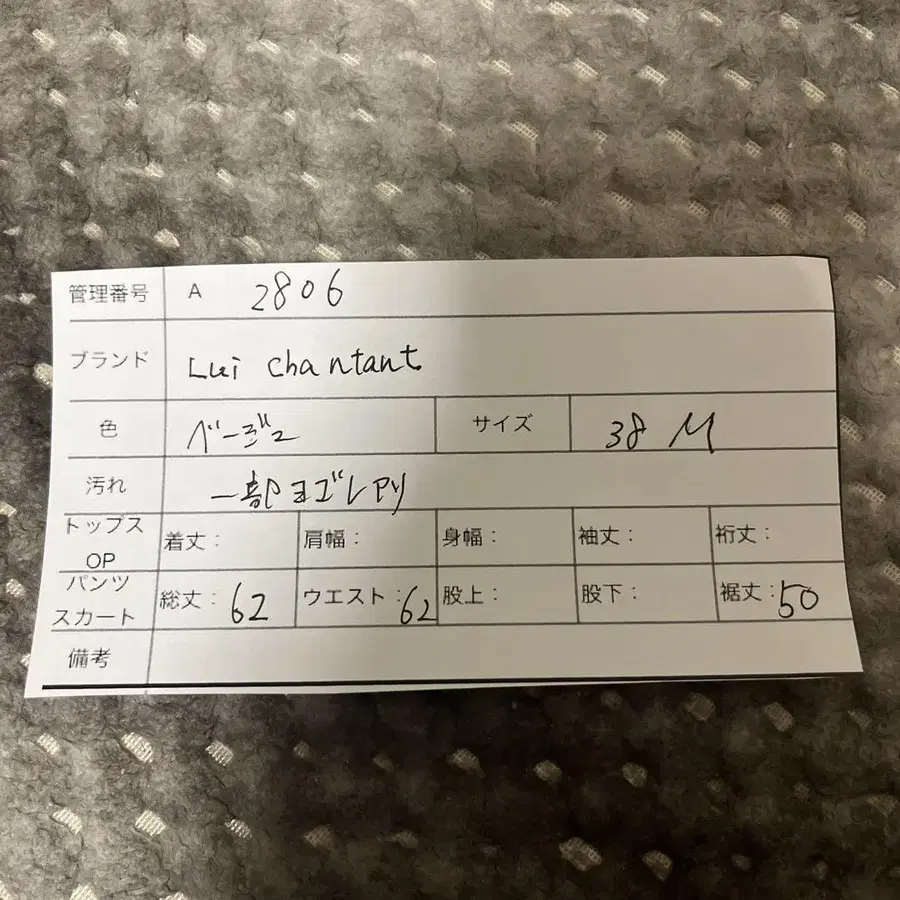 管理番号 A 2806
ブランド Lui chantant
色 ベージュ サイズ 38 M
汚れ 一部ヨゴレアリ
トップス OP 着丈： 肩幅： 身幅： 袖丈： 裄丈：
パンツ スカート 総丈：62 ウエスト：62 股上： 股下： 裾丈：50
備考